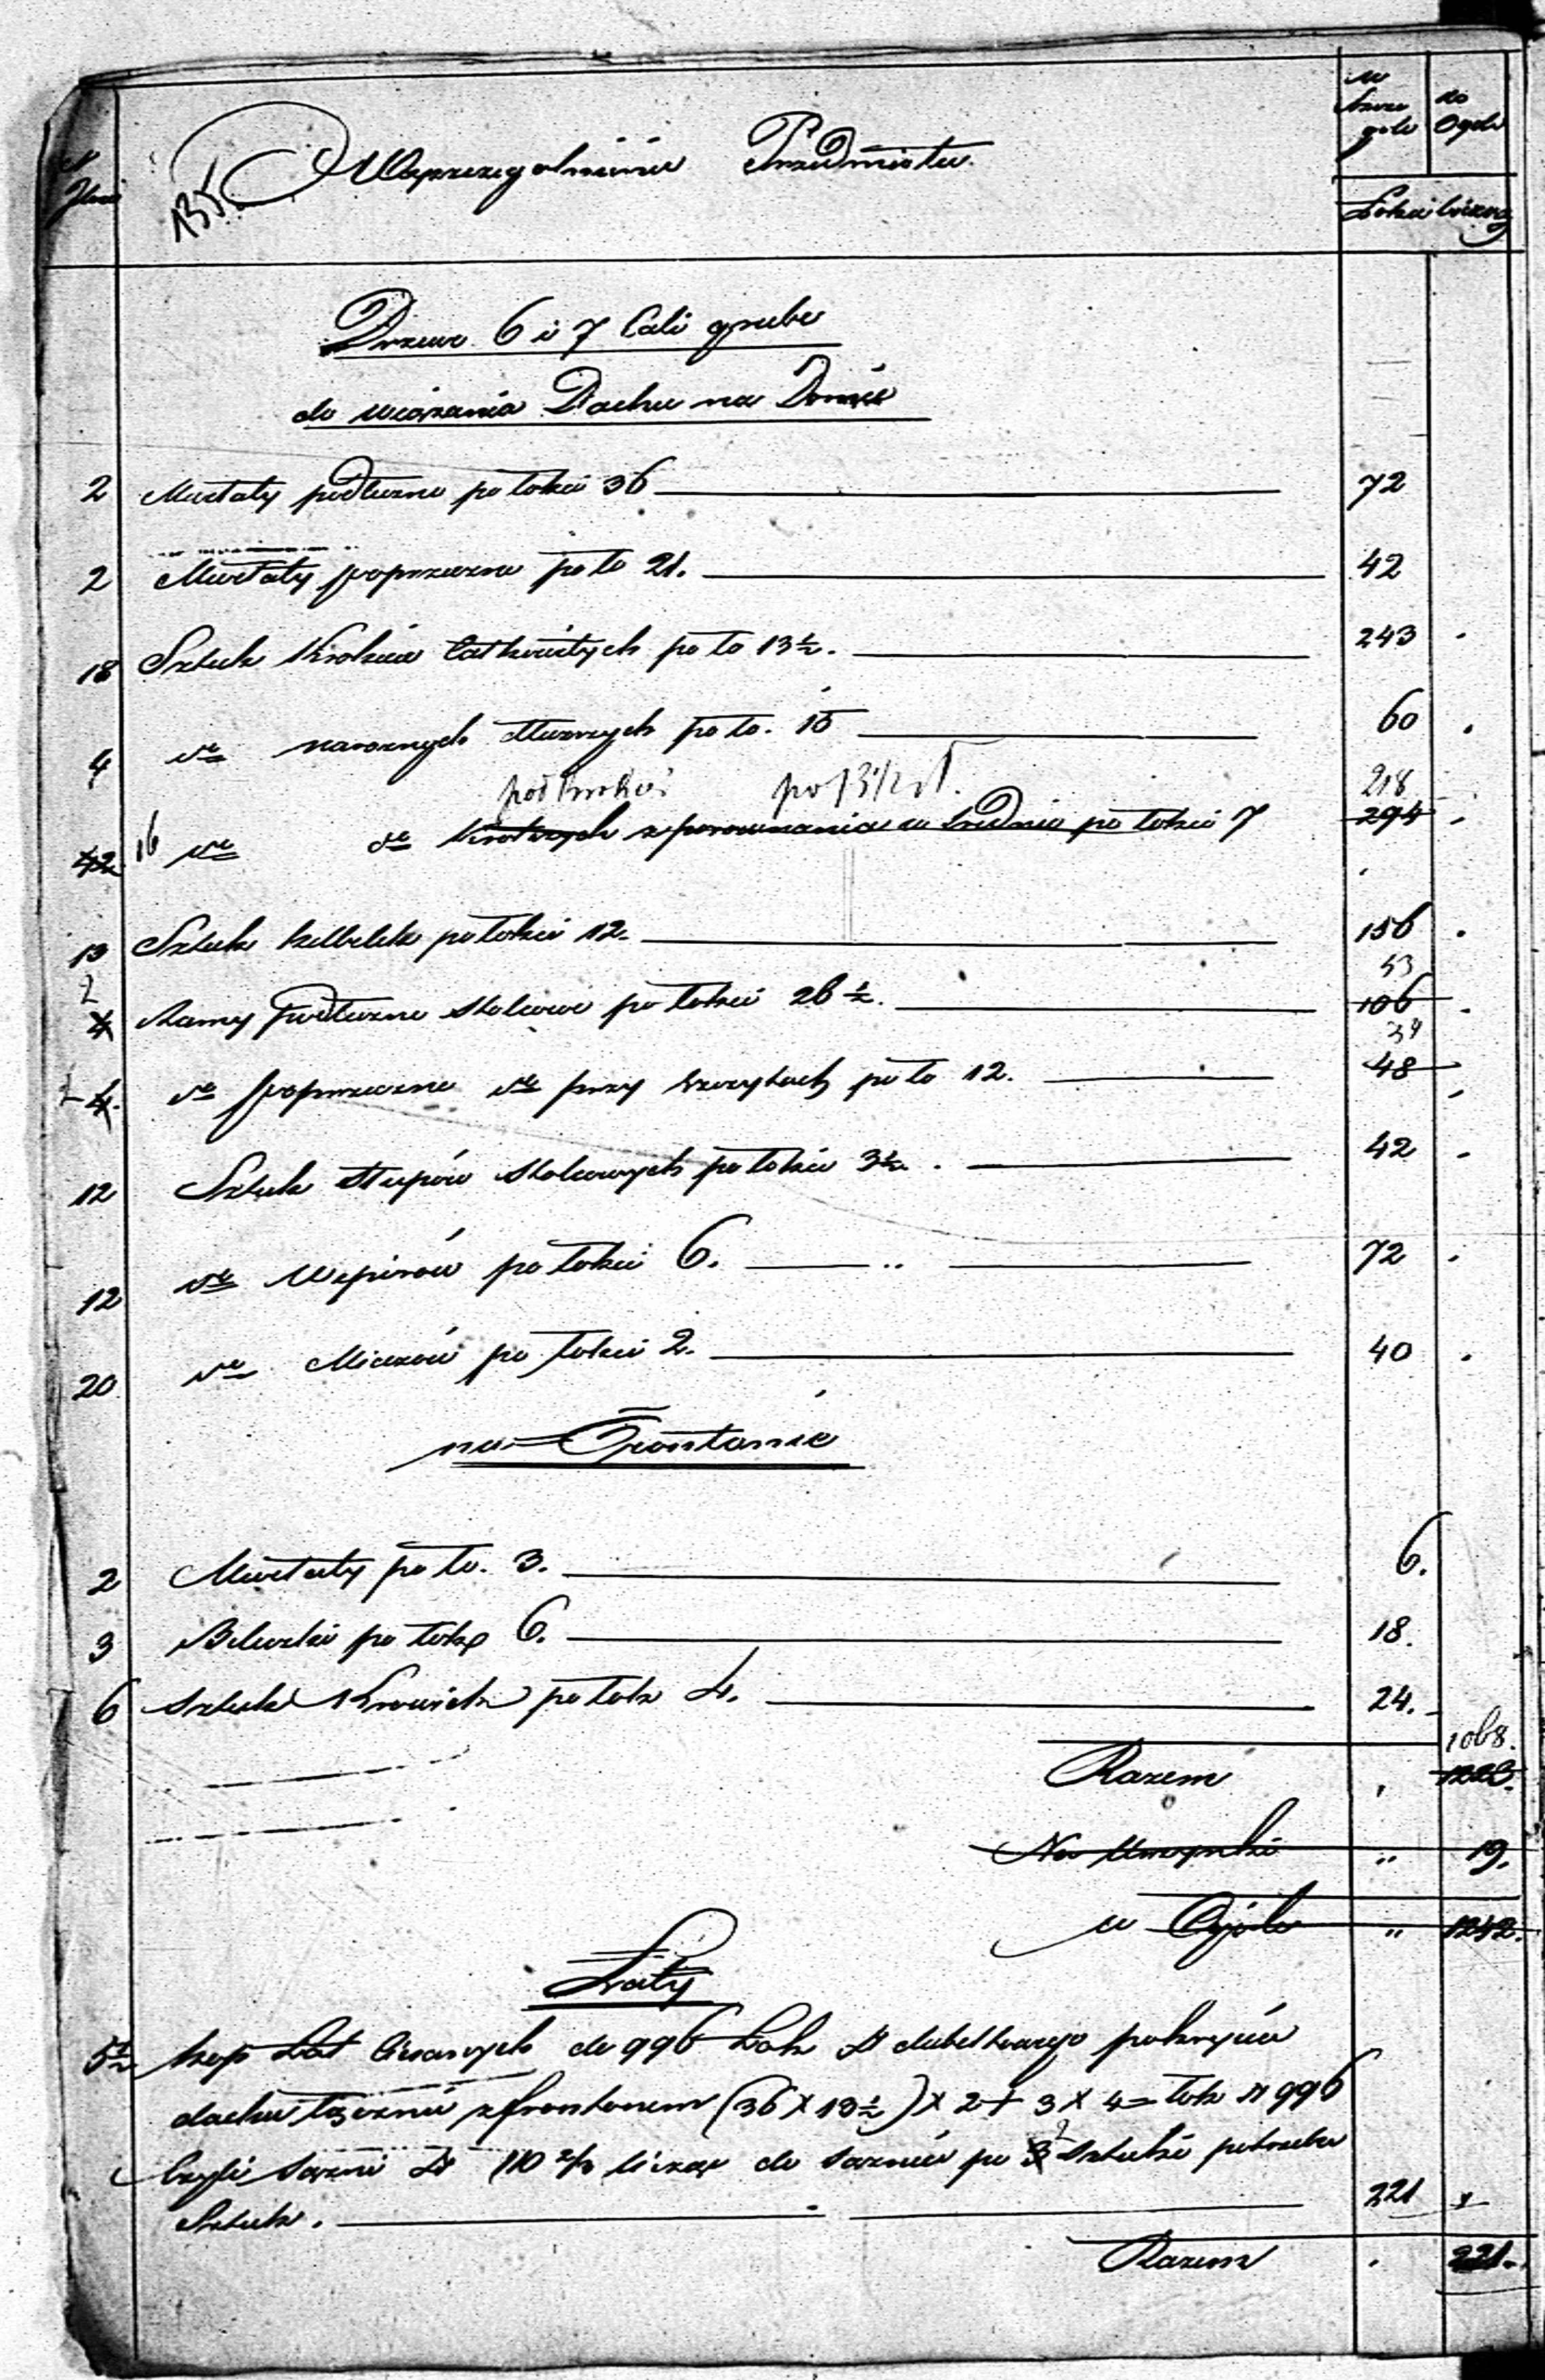 Ilość
135
Wyszczególnienie Przedmiotu
w Szcze góle
w Ogóle
Łokci bieżących
Drzewa 6 i 7 Cali grube
do wiązania Dachu na Domie
2 Murłaty podłużne po łokci 36 72
2 Murłaty poprzeczne po ło 21. 42
18 Sztuk Krokiew całkowitych po ło 13½. 243
4 do narożnych dłuższych po ło. 15 60
podkrokwi po 13½ ł. 218
42 16 do do krótszych z porównania w średnio po łokci 7 294
13 Sztuk belek po łokci 12. 156
2 53
4 Ramy podłużne stolcowe po łokci 26½. 106
24
2 4. do poprzeczne do przy szczytach po ło 12. 48
12 Sztuk słupów stolcowych po łokci 3½. 42
12 do Zastrzałów po łokci 6. 72
20 do Mieczów po łokci 2. 40
na Frontonie
2 Murłaty po ło. 3. 6.
3 Beleczki po łok 6. 18.
6 Sztuk Krowiek po łok 4. 24.
1068.
Razem 1223.
19.
w Ogóle 1242.
Łaty
5½ kop Łat ciesanych do 996 Łok □ dubeltowego pokrycia
dachu łącznie z frontonem (36 × 13½) × 2 + 3 × 4 = łok □ 996
czyli sążni □ 110 2/3 licząc do sążnia po 3 2 sztuki potrzeba
Sztuk. 221
Razem 221.